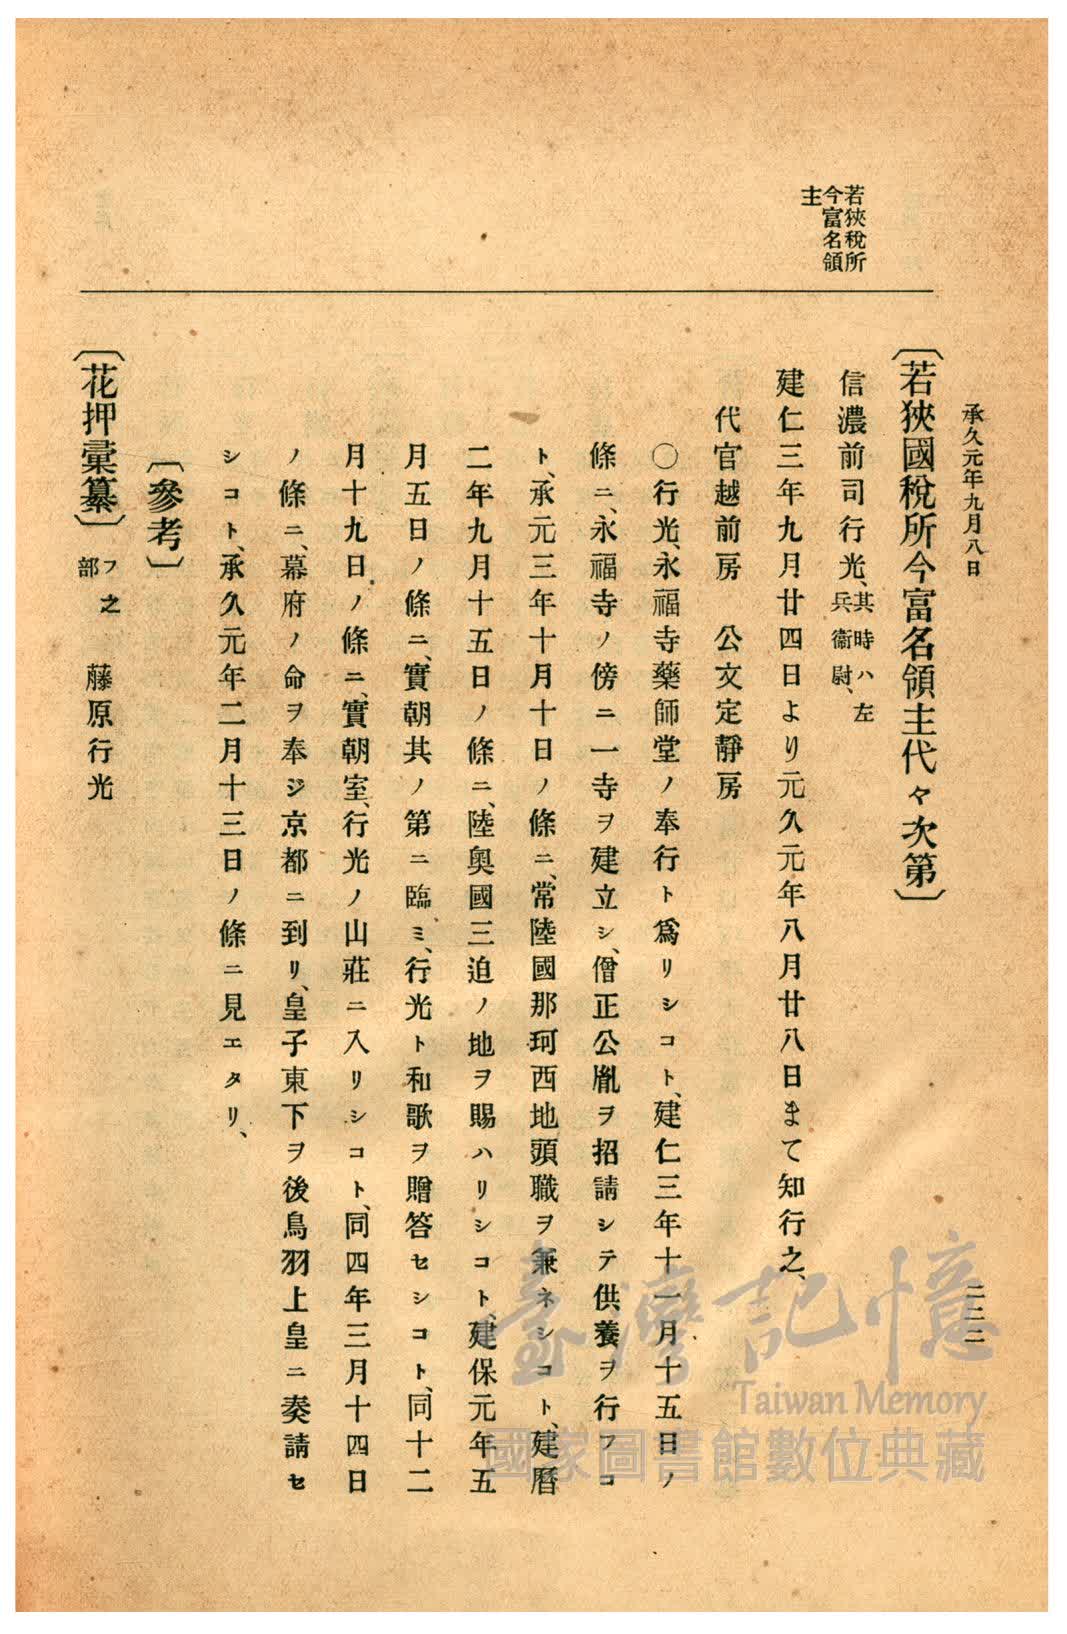 承久元年九月八日
二二二
若狹稅所
今富名領
主
〔若狹國稅所今富名領主代々次第〕
信濃前司行光、其時ハ左
兵衞尉、
建仁三年九月廿四日より元久元年八月廿八日まて知行之、
代官越前房　公文定靜房
〇行光、永福寺藥師堂ノ奉行ト爲リシコト、建仁三年十一月十五日ノ
條ニ、永福寺ノ傍ニ一寺ヲ建立シ、僧正公胤ヲ招請シテ供養ヲ行フコ
ト、承元三年十月十日ノ條ニ、常陸國那珂西地頭職ヲ兼ネシコト、建曆
二年九月十五日ノ條ニ、陸奧國三迫ノ地ヲ賜ハリシコト、建保元年五
月五日ノ條ニ、實朝其ノ第ニ臨ミ、行光ト和歌ヲ贈答セシコト、同十二
月十九日ノ條ニ、實朝室、行光ノ山莊ニ入リシコト、同四年三月十四日
ノ條ニ、幕府ノ命ヲ奉ジ京都ニ到リ、皇子東下ヲ後鳥羽上皇ニ奏請セ
シコト、承久元年二月十三日ノ條ニ見エタリ、
〔參考〕
〔花押彙纂〕フ之
部　藤原行光
臺灣記憶
Taiwan Memory
國家圖書館數位典藏